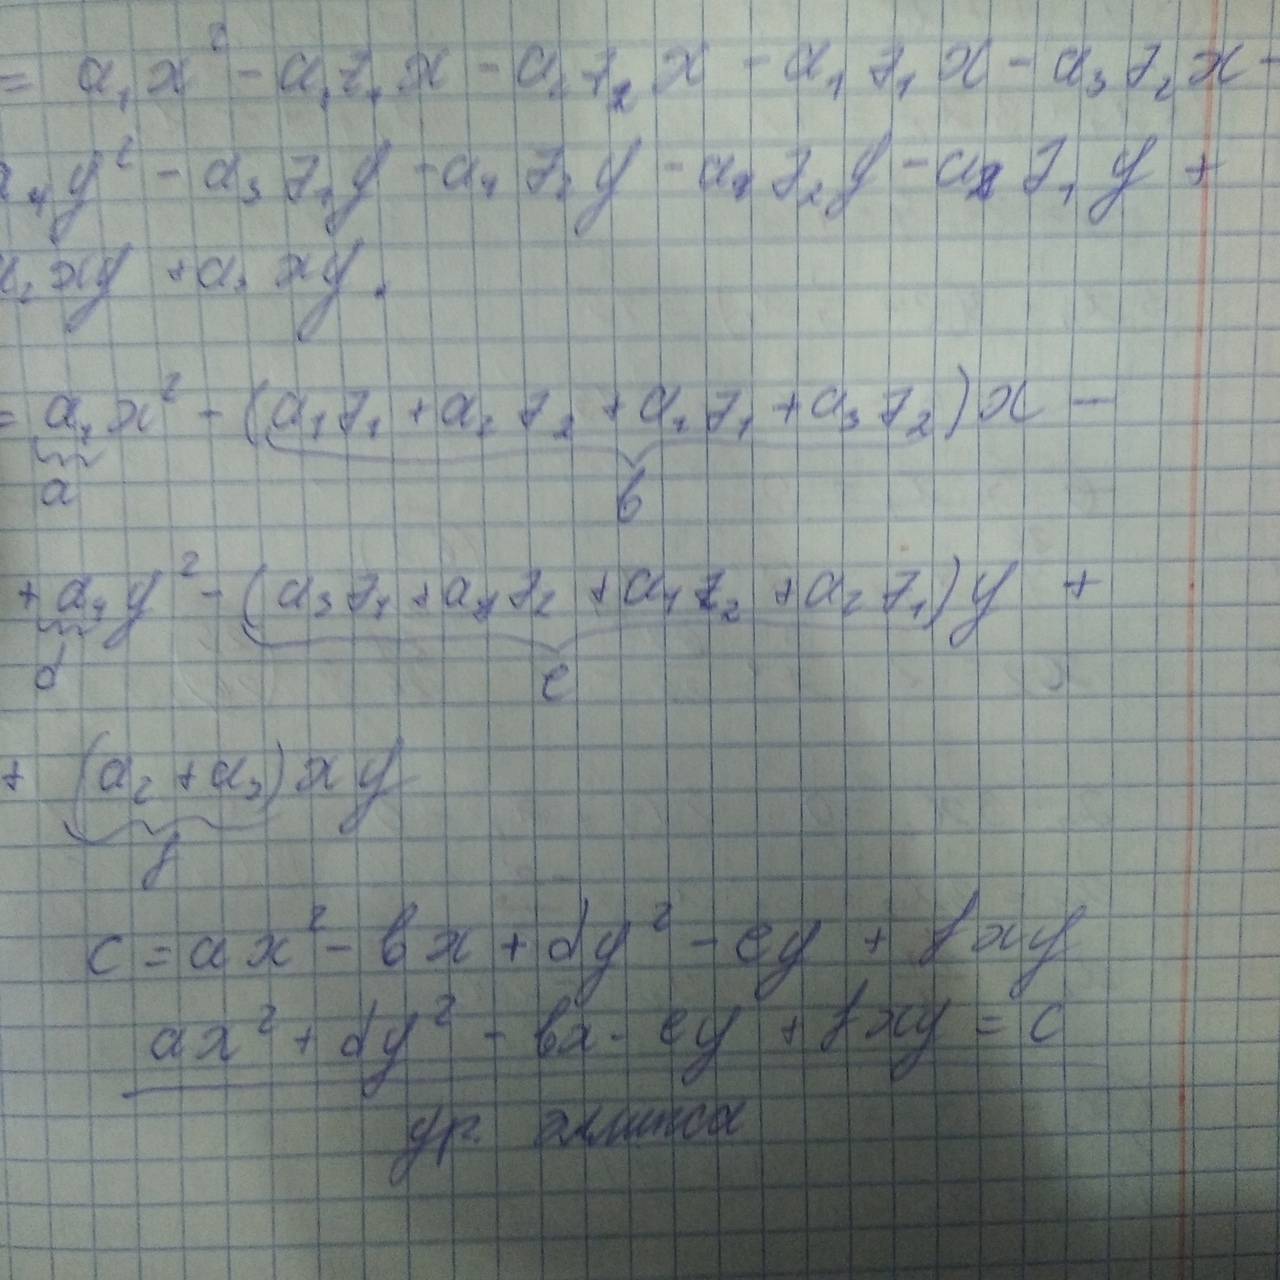 = a₁x² - a₁z₁x - a₂z₂x - a₁z₁x - a₃z₂x -
a₄y² - a₃z₁y - a₄z₂y - a₄z₂y - a₂z₁y +
a₂xy + a₃xy.
= a₁x² - (a₁z₁ + a₂z₂ + a₁z₁ + a₃z₂)x -
a b
+ a₄y² - (a₃z₁ + a₄z₂ + a₄z₂ + a₂z₁)y +
d e
+ (a₂ + a₃)xy
f
c = ax² - bx + dy² - ey + fxy
ax² + dy² - bx - ey + fxy = c
ур. эллипса